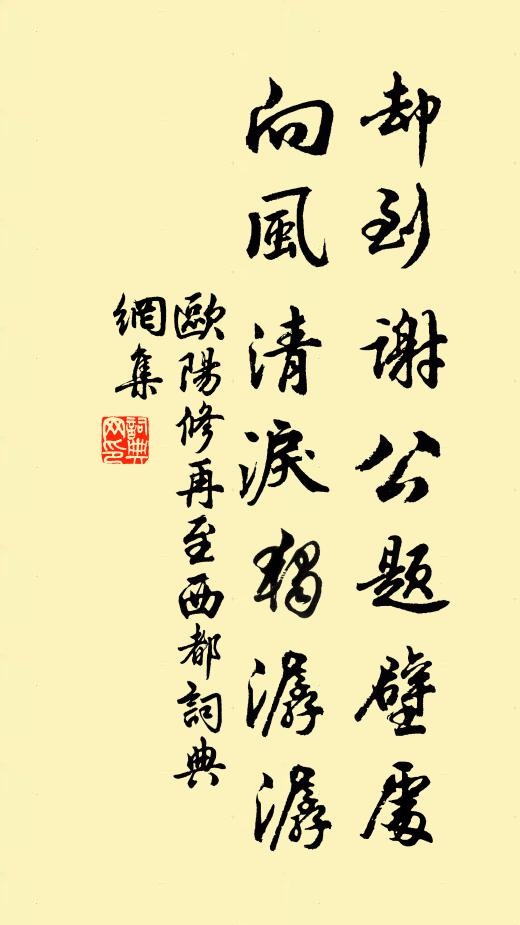 却到谢公题壁處
向風清淚獨潺潺
歐陽修再至西都詞典
網集
詞典網印